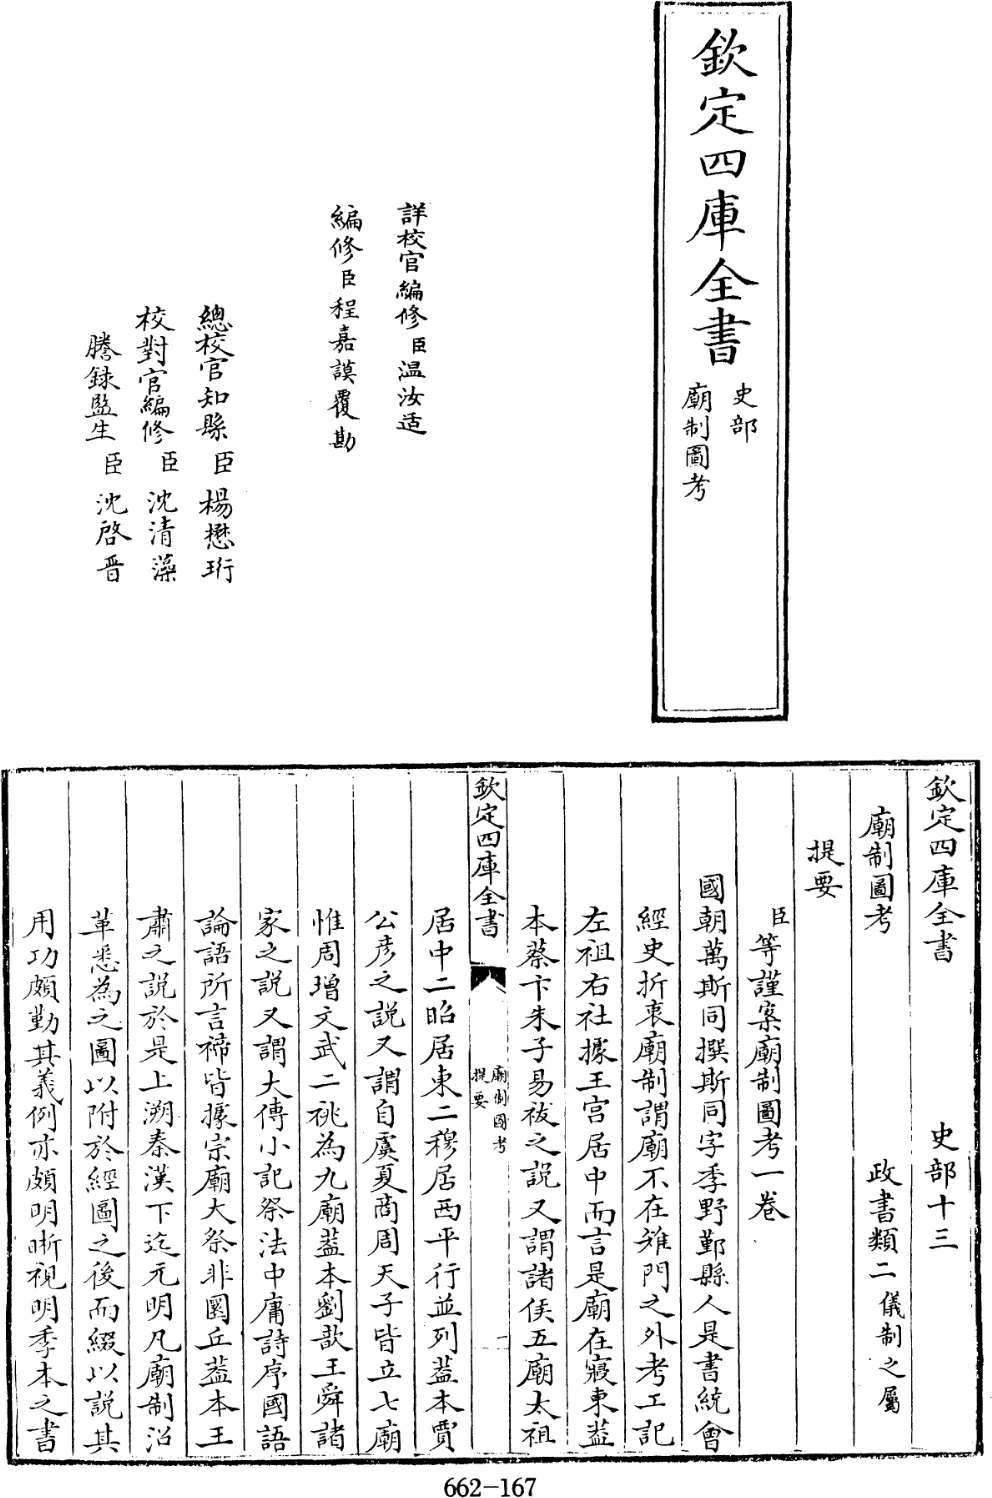 欽定四庫全書
史部
廟制圖考
詳校官編修臣温汝适
編修臣程嘉謨覆勘
總校官知縣臣楊懋珩
校對官編修臣沈清藻
謄録監生臣沈啓晋
欽定四庫全書 史部十三
廟制圖考 政書類二儀制之屬
提要
臣等謹案廟制圖考一卷
國朝萬斯同撰斯同字季野鄞縣人是書統會
經史折衷廟制謂廟不在雉門之外考工記
左祖右社據王宫居中而言是廟在寢東葢
本蔡卞朱子易祓之説又謂諸侯五廟太祖
欽定四庫全書
廟制圖考
提要
一
居中二昭居東二穆居西平行並列葢本賈
公彦之説又謂自虞夏商周天子皆立七廟
惟周増文武二祧為九廟葢本劉歆王舜諸
家之説又謂大傳小記祭法中庸詩序國語
論語所言禘皆據宗廟大祭非圜丘葢本王
肅之説於是上溯秦漢下迄元明凡廟制沿
革悉為之圖以附於經圖之後而綴以説其
用功頗勤其義例亦頗明晰視明季本之書
662-167